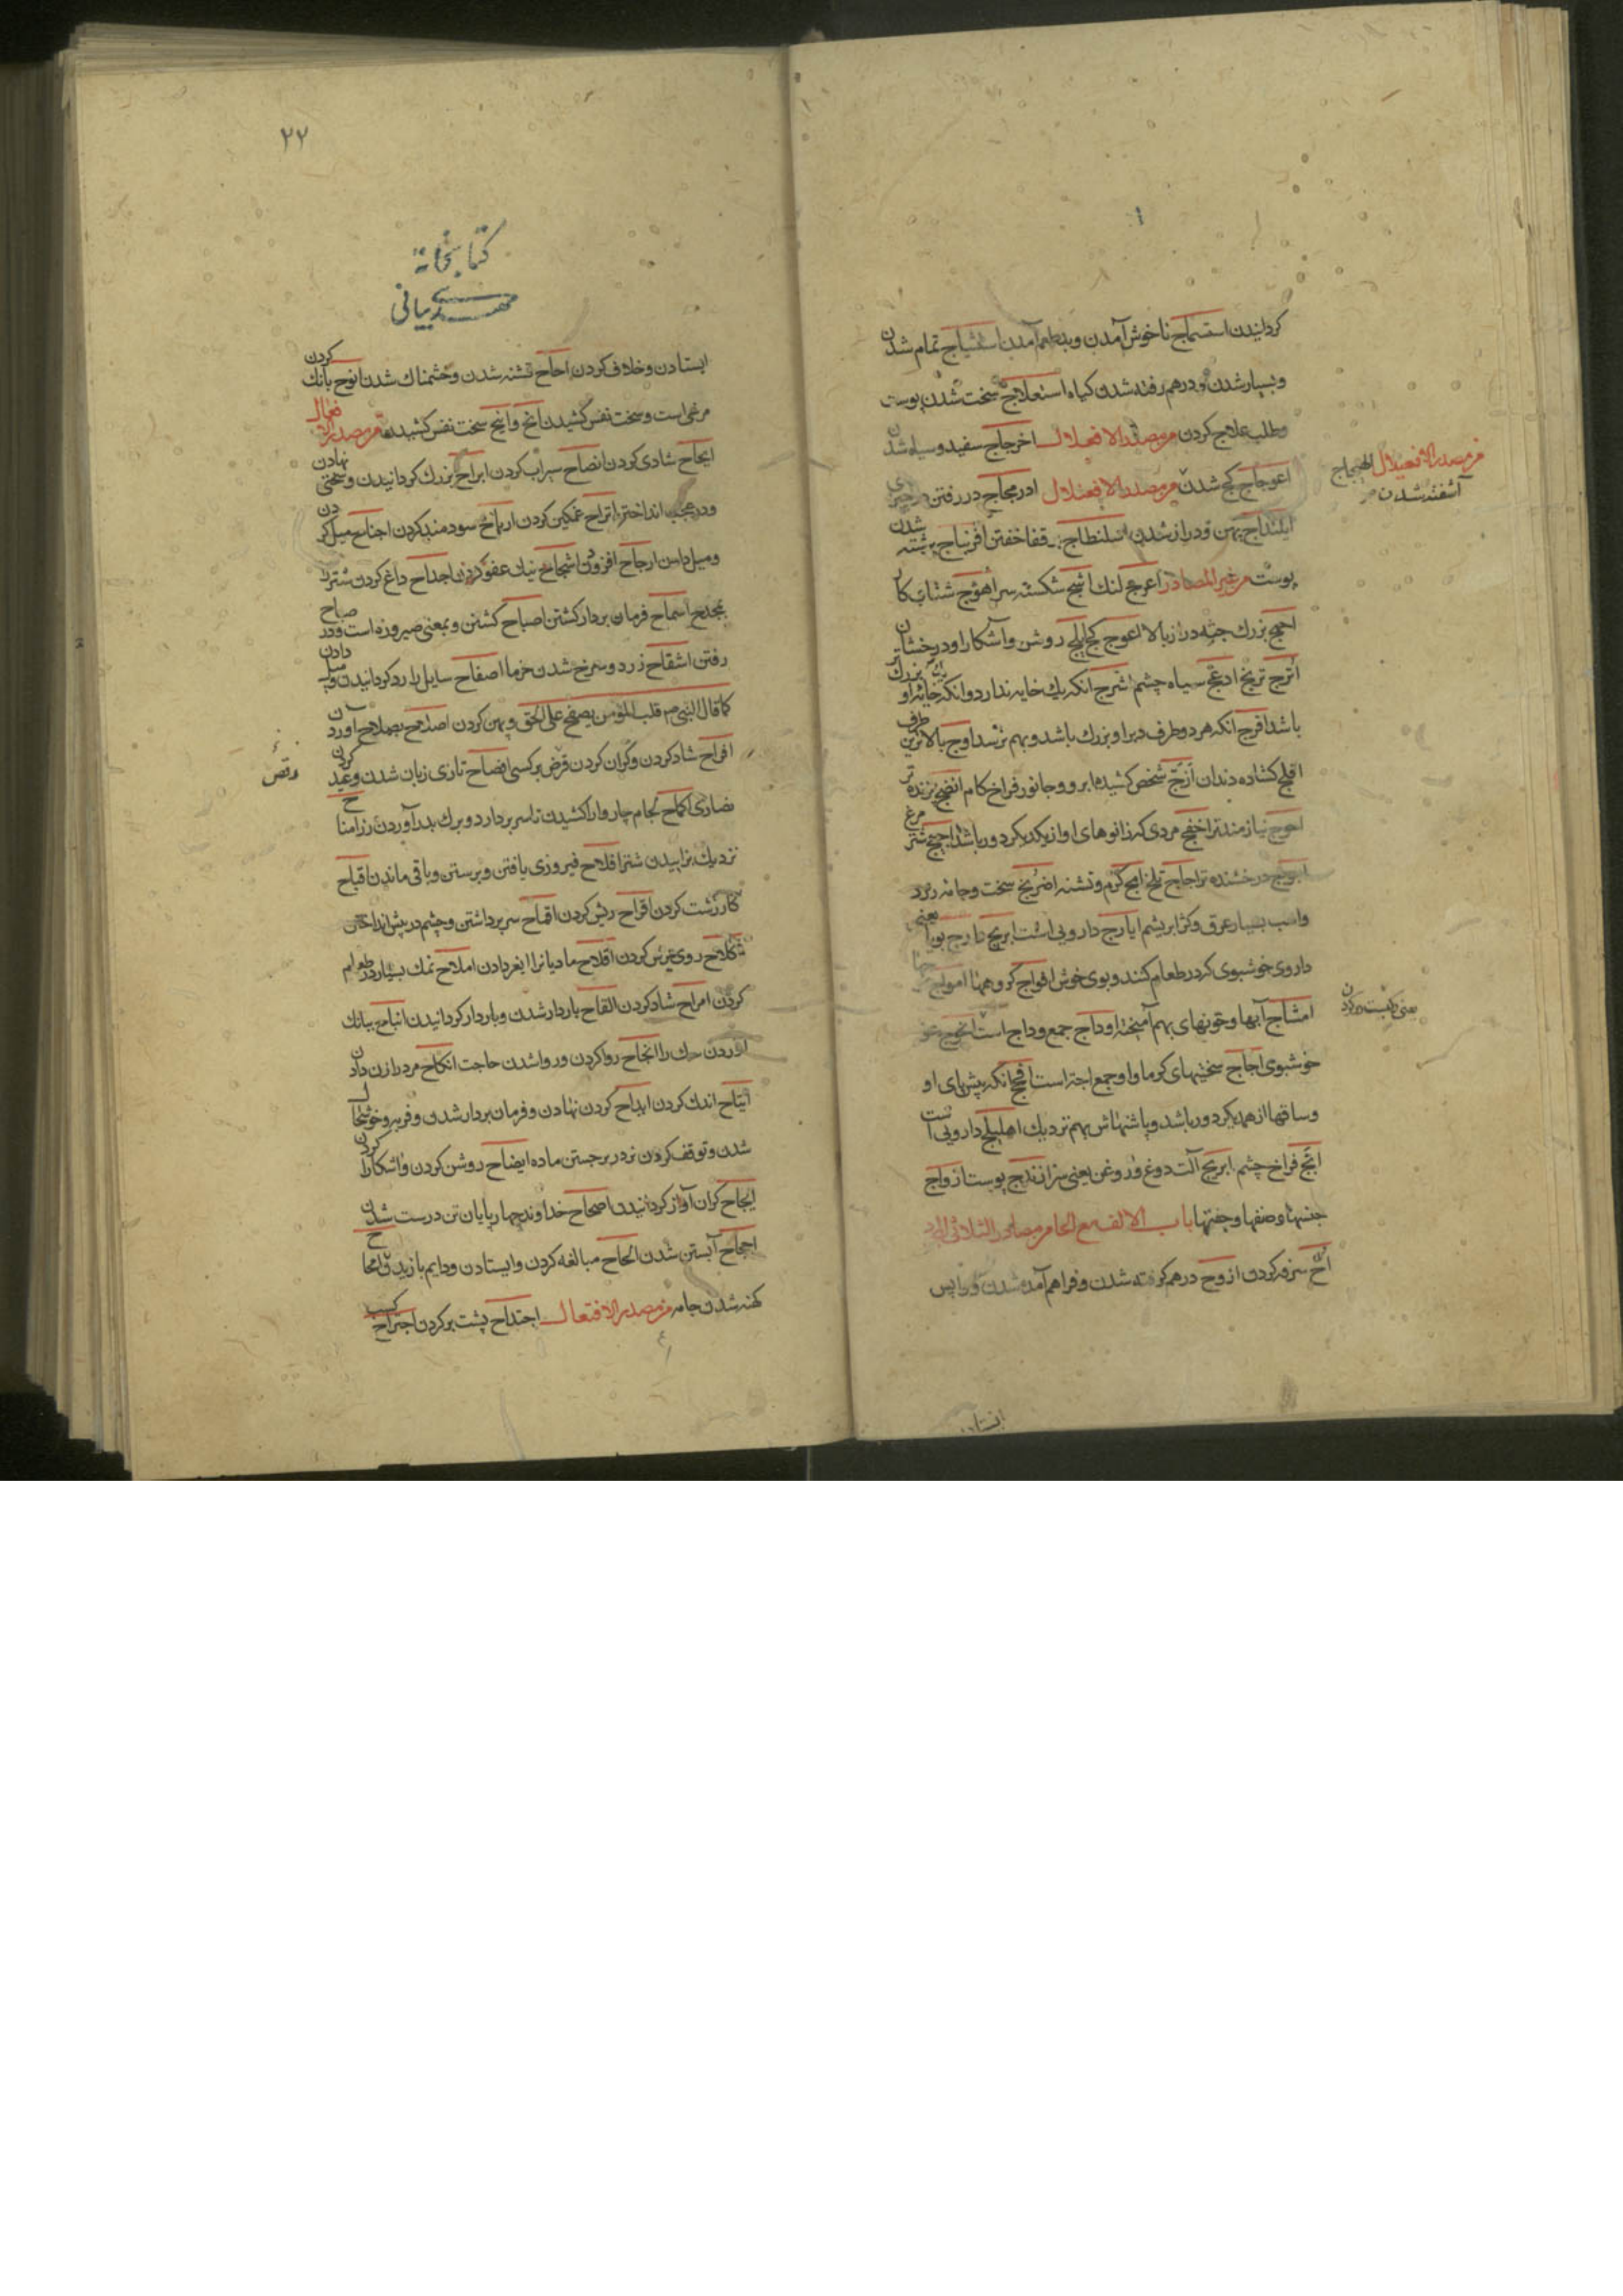 گردانیدن استسماج ناخوش آمدن و بدطعم آمدن استشیاج تمام شدن
و بسیار شدن و درهم رفته شدن گیاه استعلاج سخت شدن پوست
و طلب علاج کردن من مصدر الافعلال اخرجاج سفید و سیاه شدن
من مصدر الافعیلال
آشفته شدن
اعوجاج کج شدن من مصدر الافعنلال ادرمجاج در رفتن در چیزی
ابلنداج پهن و دراز شدن اسلنطاج بر قفا خفتن افرنباج برشته شدن
پوست من غیر المصادر اعرج لنگ اشج شکسته سر اهوج شتاب کار
بزرگ جثه دراز بالا اعوج کج ابلج روشن و آشکارا و درخشان
اترج ترنج ادعج سیاه چشم اشرج آنکه یک خایه ندارد و آنکه خایه او
باشد افرج آنکه هر دو طرف دبر او بزرگ باشد و بهم نرسد اوج بالاترین طرف
افلج گشاده دندان ازج شخص کشیده ابرو و جانور فراخ کام انضج پزنده تر
احوج نیازمندتر اخفج مردی که زانوهای او از یکدیگر دور باشد
درخشنده تر اجاج تلخ امج گرم و تشنه اضریج سخت و جامه زرد
واسب بسیار عرق و کژ ابریشم ایارج دارویی است
داروی خوشبوی که در طعام کنند و بوی خوش افواج گروهها امواج
امشاج آبها و خونهای بهم آمیخته اوداج جمع وداج است
خوشبوی اجاج سختیهای گرما و او جمع اجة است افحج آنکه پیش پای او
و ساقها از همدیگر دور باشد و پاشنهاش بهم نزدیک اهلیلج دارویی است
انج فراخ چشم ابریج آلت دوغ و روغن یعنی ارندج پوست ازواج
جنسها و صنفها و جفتها باب الالف مع الحا من مصادر الثلاثی المجرد
اح سرفه کردن ازوح درهم گرفته شدن و فراهم آمده شدن و واپس
۲۷
کتابخانه
مهدی بیانی
ایستادن و خلاف کردن احاح تشنه شدن و خشمناک شدن انوح بانک کردن
مرغی است و سخت نفس کشیدن انح و انیح سخت نفس کشیدن من مصدر الافعال
ابجاح شادی کردن انضاح سیراب کردن ابراح بزرگ گردانیدن و سختی نهادن
و در عجب انداختن اتراح غمگین کردن ارباح سودمند کردن اجناح میل کردن
و میل دادن ارجاح افزودن اسجاح نیک عفو کردن اجداح داغ کردن شتر را
بمجدح اسماح فرمان بردار گشتن اصباح گشتن و بمعنی صیروره است و در صباح
رفتن اشقاح زرد و سرخ شدن خرما اصفاح سایل را رد گردانیدن و میل دادن
کما قال النبی ص قلب المؤمن یصفح علی الحق و پهن کردن اصلاح بصلاح آوردن
افراح شاد کردن و گران کردن قرض بر کسی افصاح تازی زبان شدن و عید کردن
نصاری اکماح لجام چاروا را کشیدن تا سر بردارد و برگ بدر آوردن رز امناح
نزدیک بزاییدن شتر افلاح فیروزی یافتن و برستن و باقی ماندن اقباح
کار زشت کردن اقراح ریش کردن اقماح سر برداشتن و چشم در پیش انداختن
اکلاح روی ترش کردن املاح نمک بسیار در طعام
کردن امراح شاد کردن القاح باردار شدن و باردار گردانیدن انباح ببانک
آوردن سگ را انجاح روا کردن و روا شدن حاجت انکاح مرد را زن دادن
ایتاح اندک کردن ایداح گردن نهادن و فرمان بردار شدن و فربه و خوشحال
شدن و توقف کردن نر در برجستن ماده ایضاح روشن کردن و آشکارا کردن
ابحاح گران آواز گردانیدن اصحاح خداوند چهارپایان تن درست شدن
اجحاح آبستن شدن الحاح مبالغه کردن و ایستادن و دایم باریدن امحاح
کهنه شدن جامه من مصدر الافتعال اجتداح پشت بر کردن اجتراح کسب